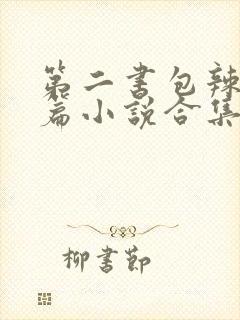 第二书包辣
篇小说合集
柳书节